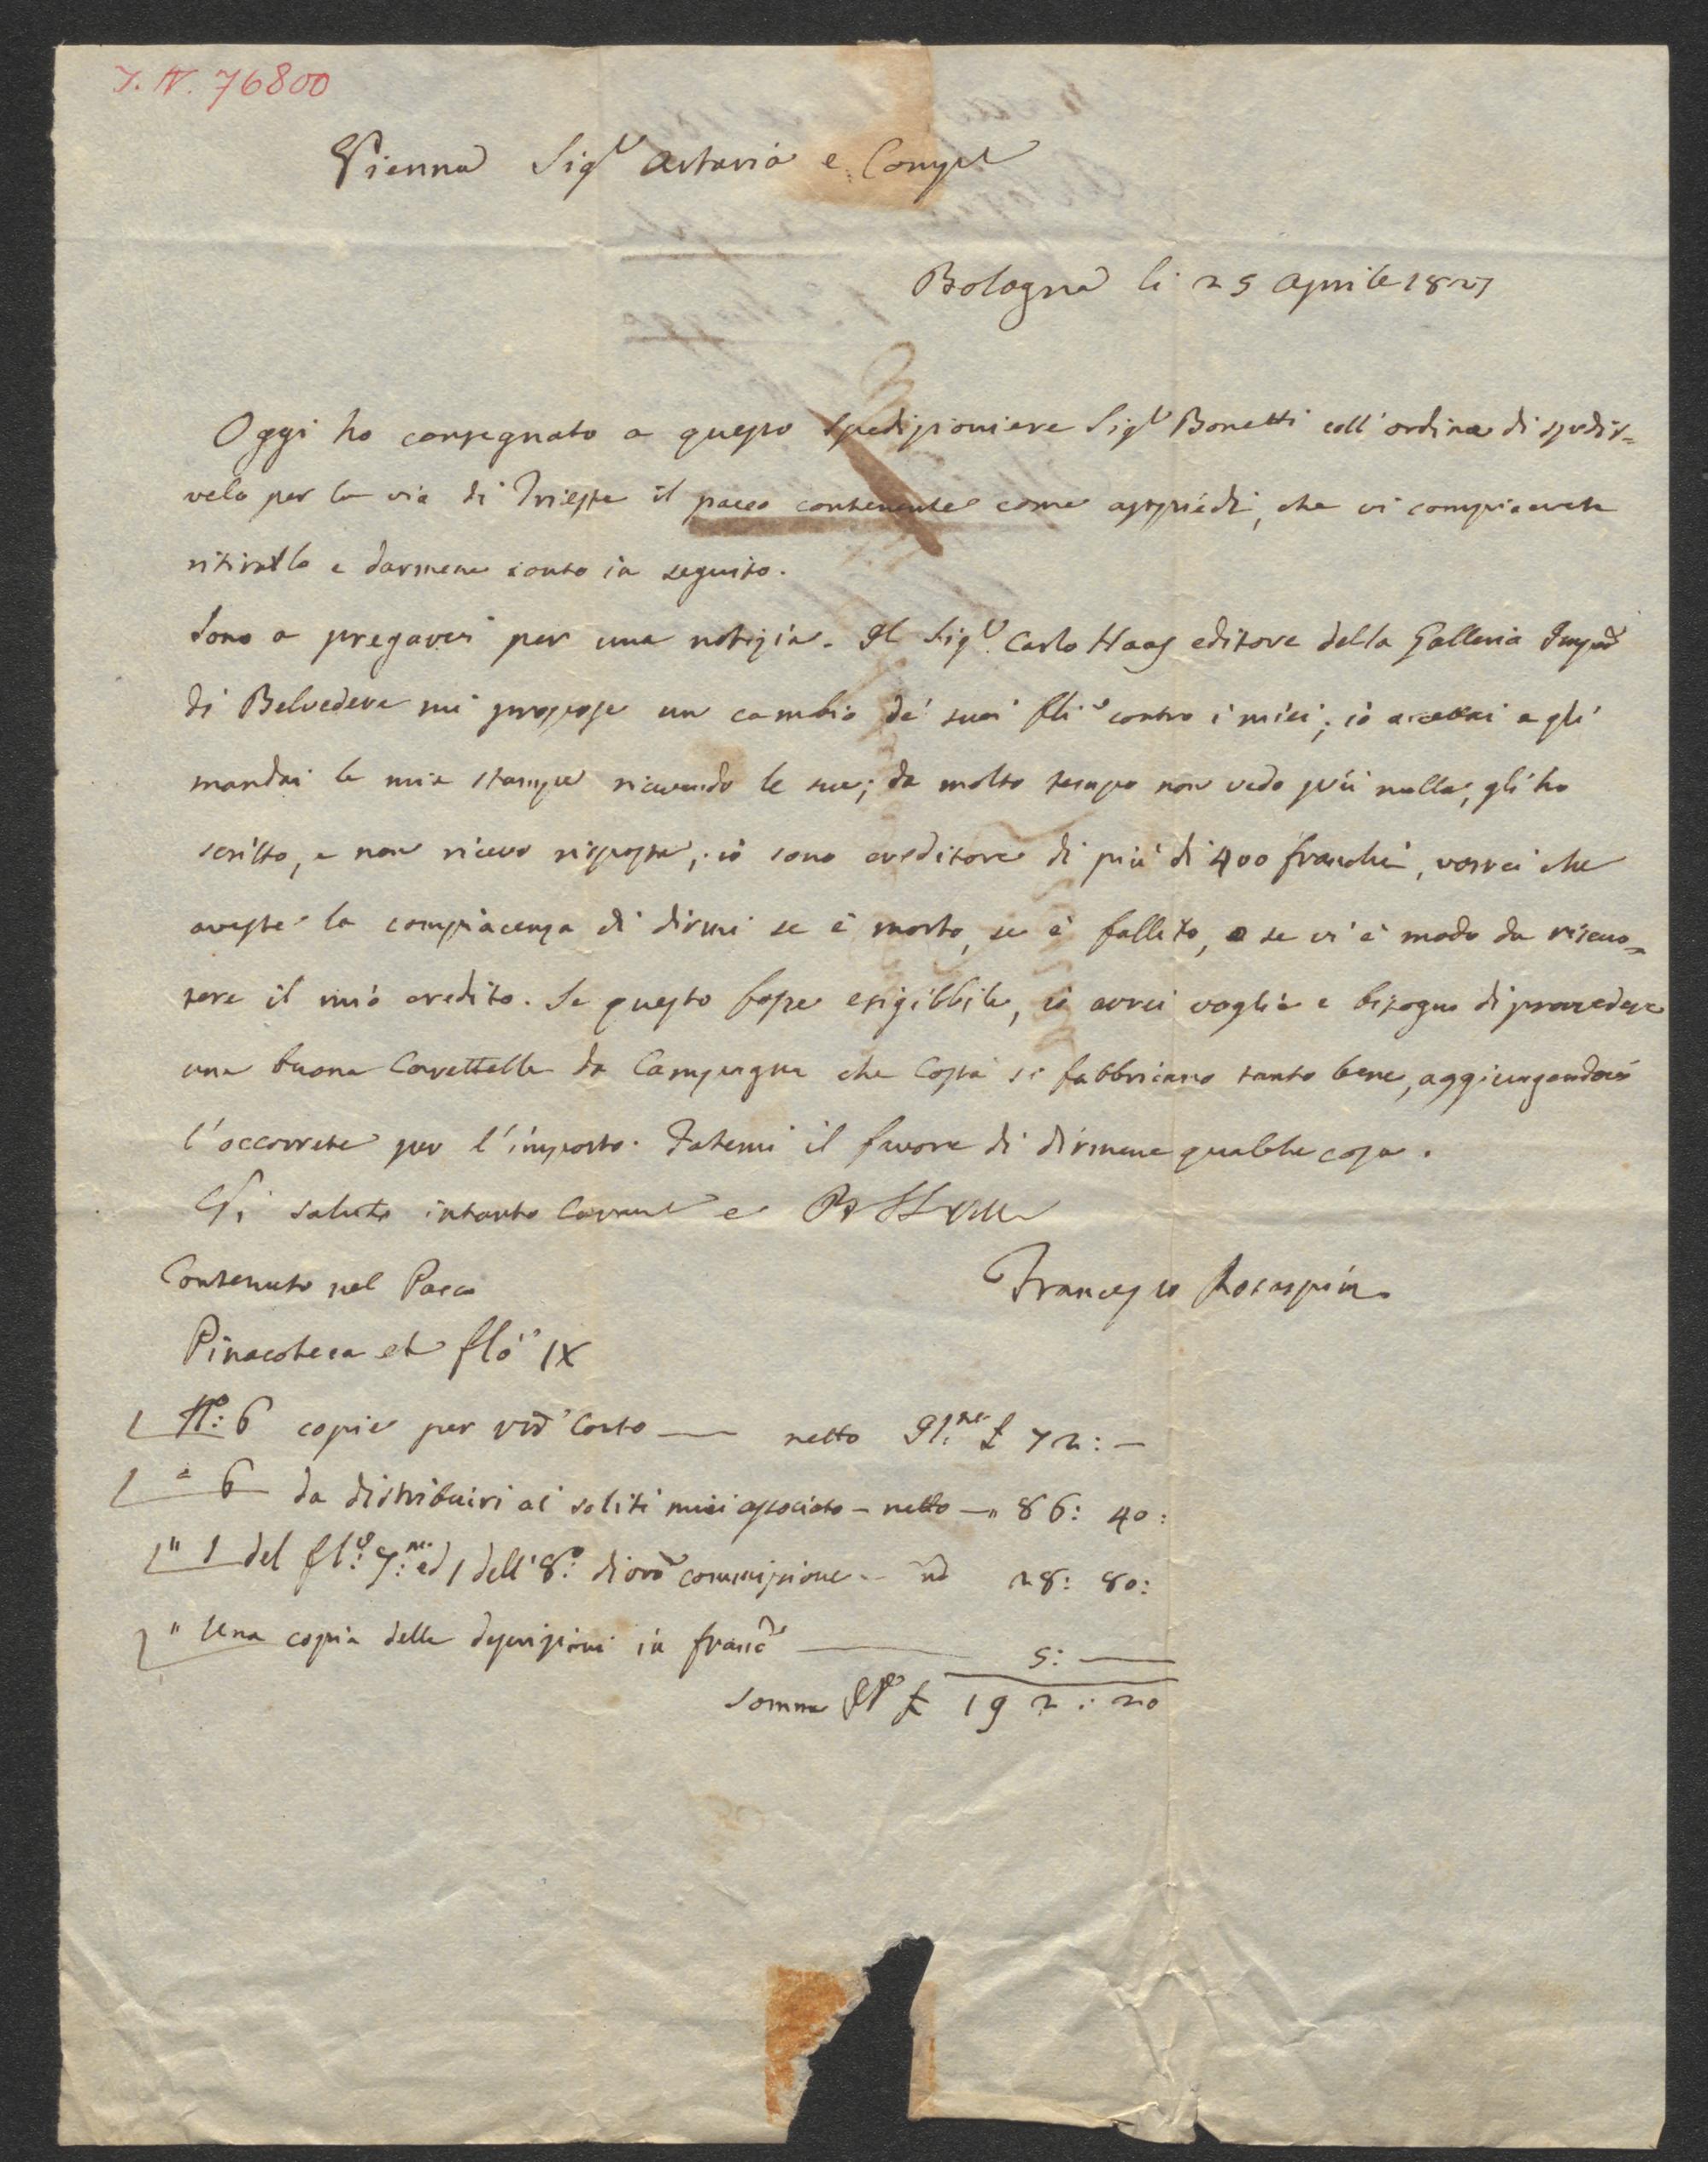 I. N. 76800
Vienna Sigri Artaria e Compi
Bologna li 25 Aprile 1827
Oggi ho consegnato a questo spedizioniere Sigr Bonetti coll'ordine di spedir=
velo per la via di Trieste il pacco contenente come appiedi, che vi compiacerete
ritirarlo e darmene conto in seguito.
Sono a pregarvi per una notizia. Il Sigr. Carlo Haas editore della Galleria Impe
di Belvedere mi propose un cambio de' suoi fli contro i miei; io accettai e gli
mandai le mie stampe ricevendo le sue; da molto tempo non vedo più nulla, gli ho
scritto, e non ricevo risposta; io sono creditore di più di 400 franchi, vorrei che
aveste la compiacenza di dirmi se è morto, se è fallito, o se vi è modo da riscuo=
tere il mio credito. Se questo fosse esigibbile, io avrei voglia e bisogno di provedere
una buona Carettella da Campagna che costà si fabbricano tanto bene, aggiungendovi
l'occorrete per l'importo. Fatemi il favore di dirmene qualche cosa.
Vi saluto intanto Carame e
Francesco Rosaspina
Contenuto nel Pacco
Pinacoteca etc flo IX
No: 6 copie per vro Conto — netto It.ne £ 72: —
" 6 da distribuirsi ai soliti miei associati — netto — " 86: 40:
" 1 del flo: 7.mo: ed 1 dell' 8.o: di vra commissione — no 28: 80:
" Una copia delle descrizioni in franc — 5: —
Somma £ 192: 20